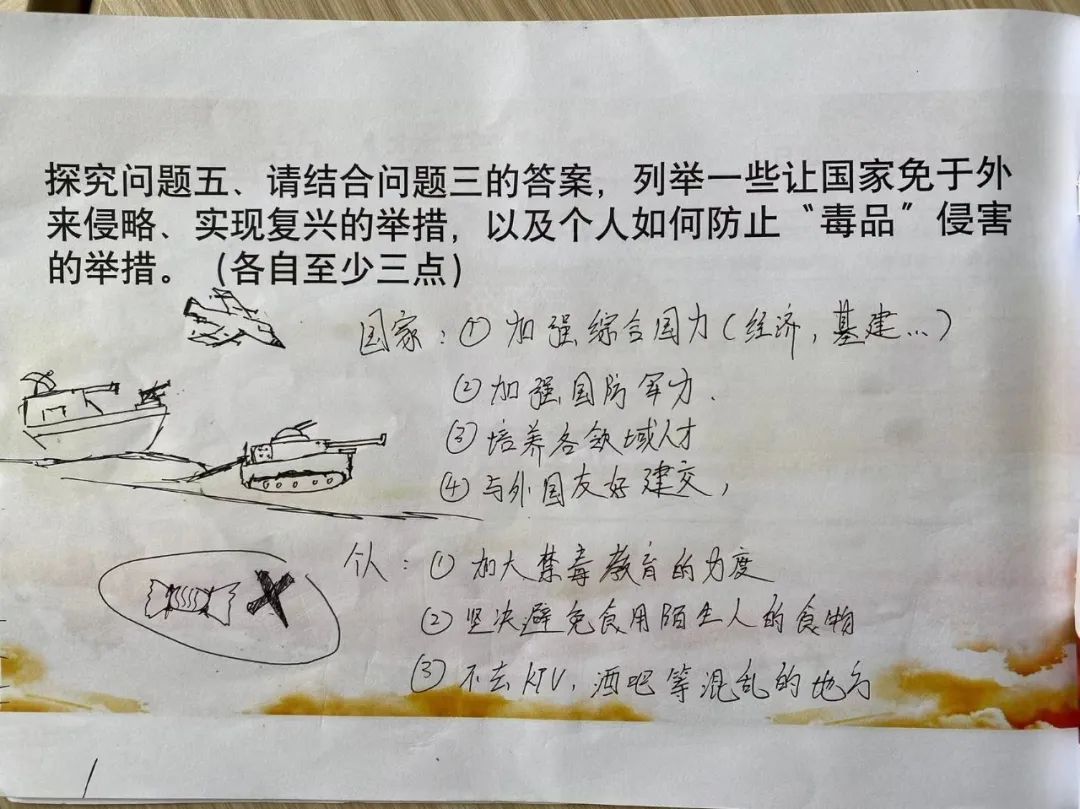 探究问题五、请结合问题三的答案，列举一些让国家免于外
来侵略、实现复兴的举措，以及个人如何防止“毒品”侵害
的举措。（各自至少三点）
国家：① 加强综合国力（经济，基建…）
② 加强国防军力．
③ 培养各领域人才
④ 与外国友好建交，
个人：① 加大禁毒教育的力度
② 坚决避免食用陌生人的食物
③ 不去KTV、酒吧等混乱的地方